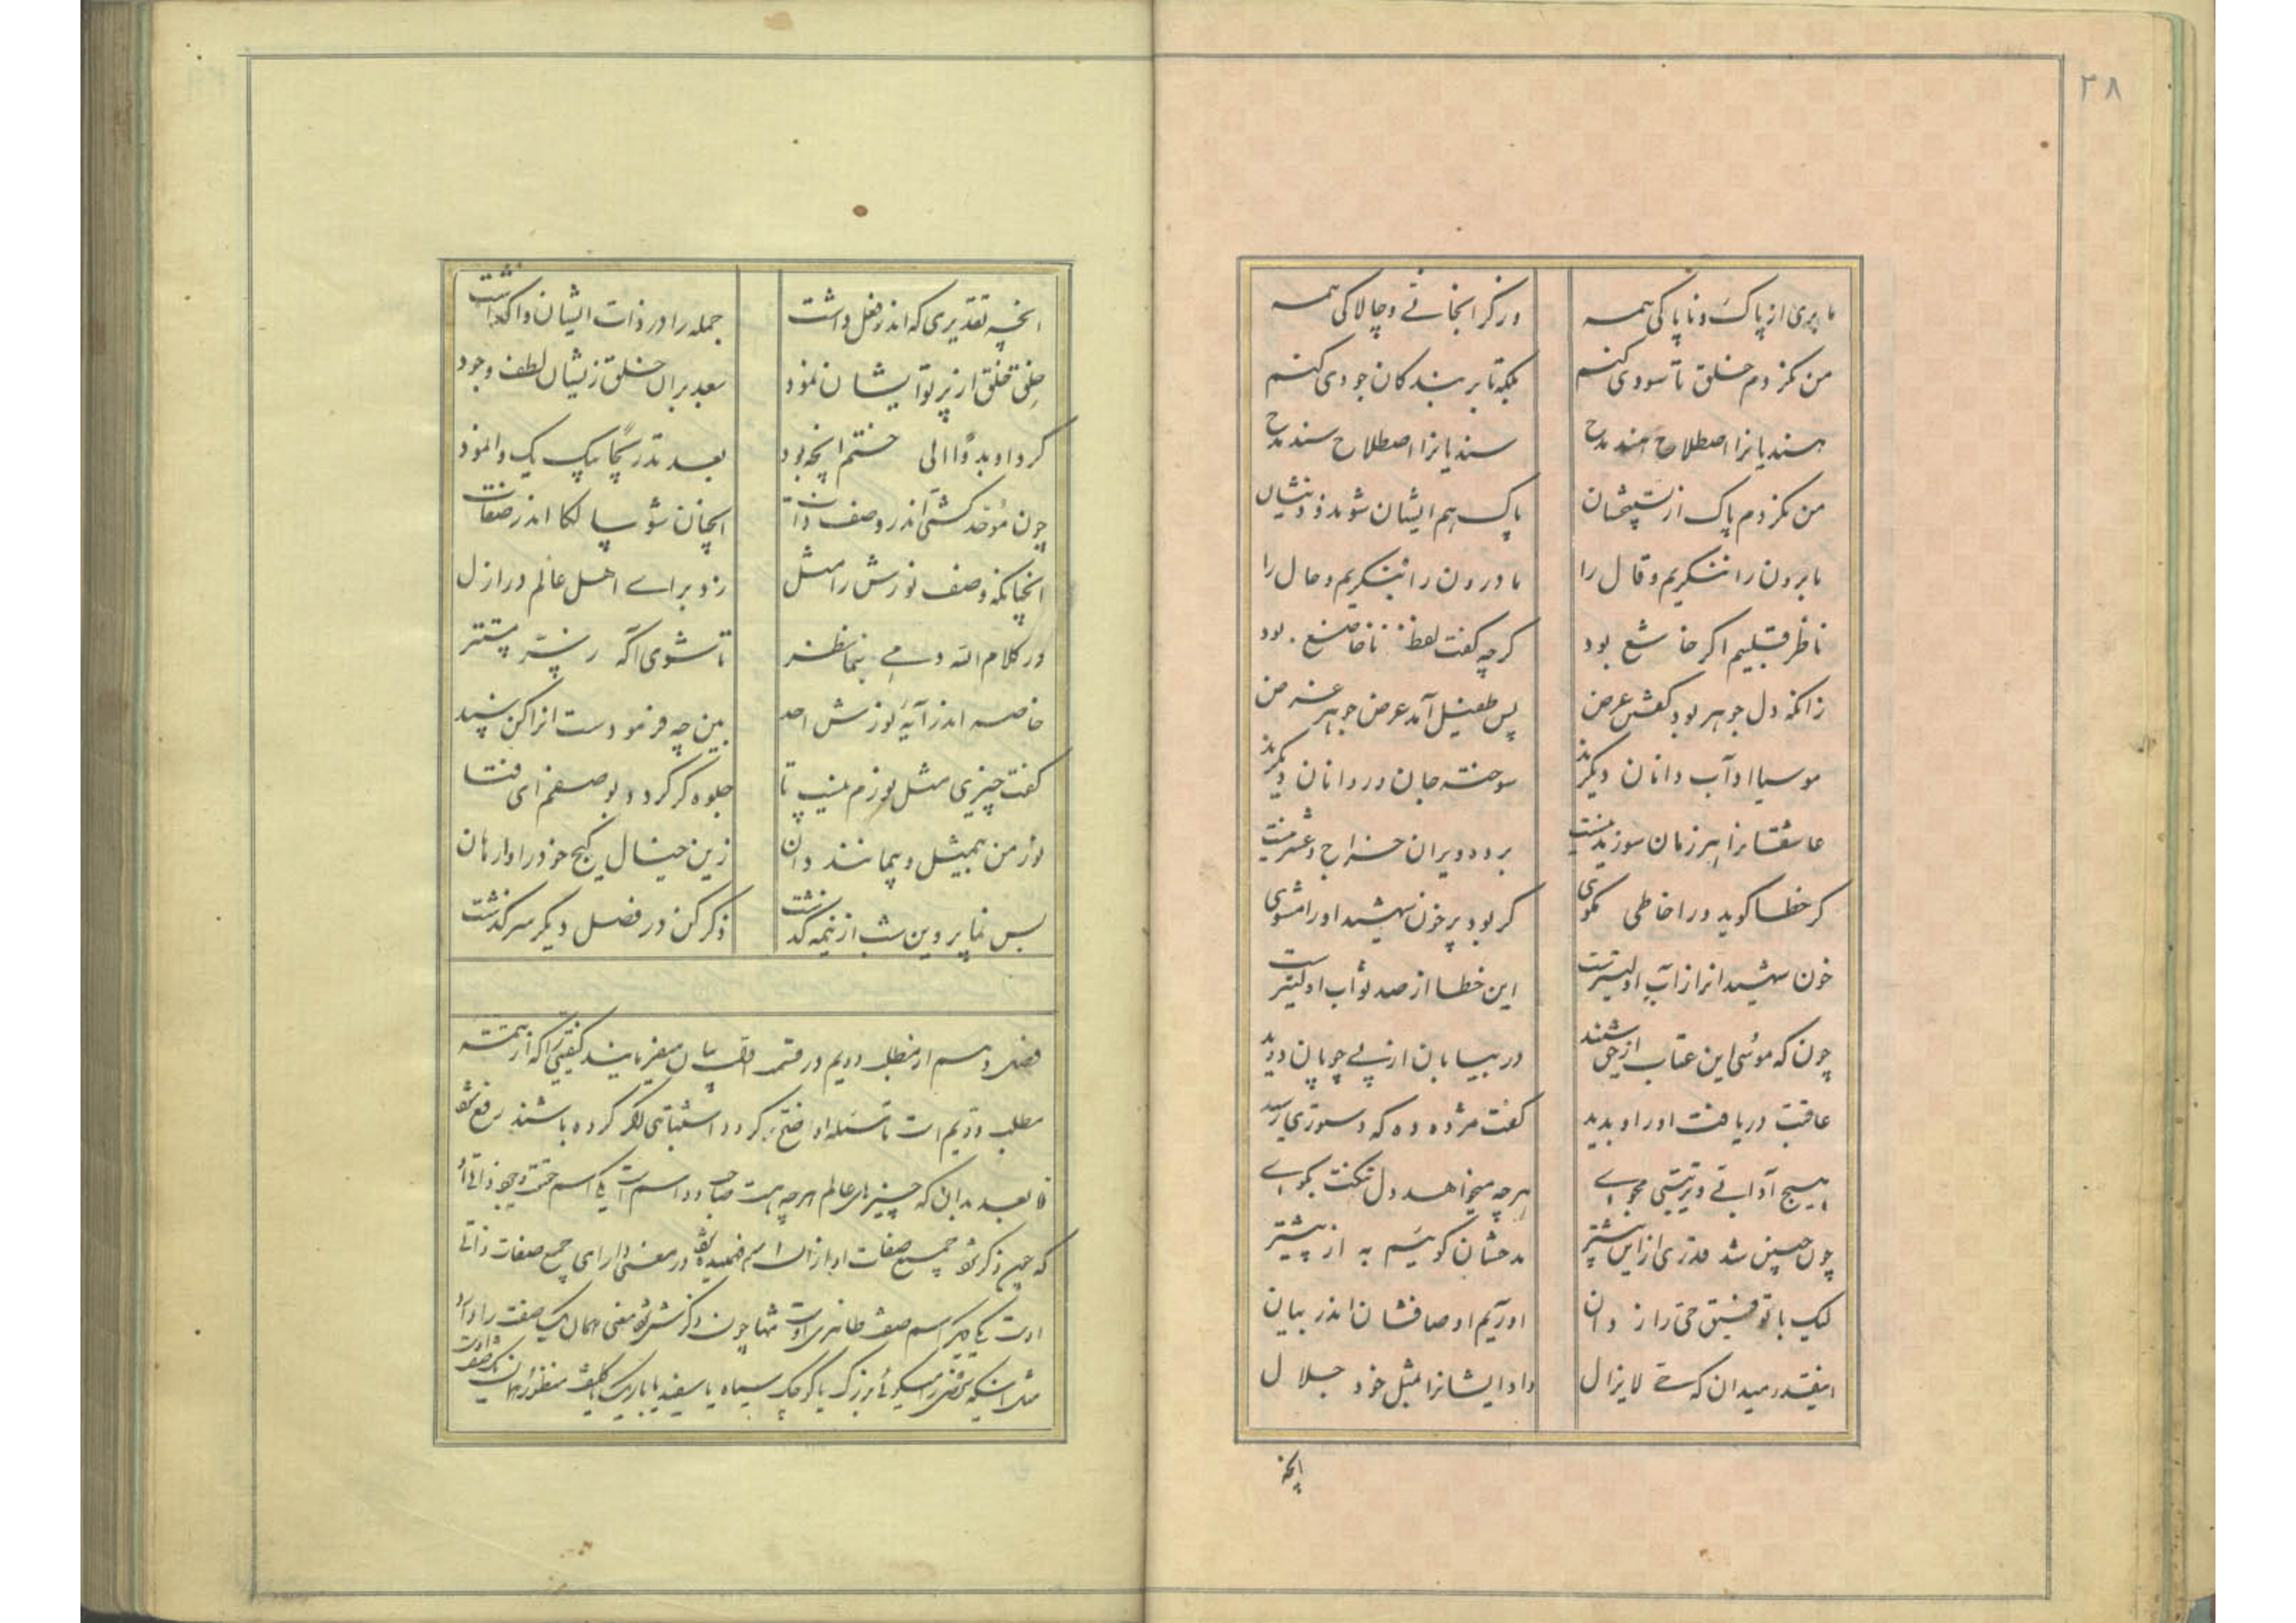 ۳۸
ما بری از پاک و ناپاکی همه
ور گرانجانی و چالاکی همه
من نکردم خلق تا سودی کنم
بلکه تا بر بندگان جودی کنم
هندیانرا اصطلاح هند مدح
سندیانرا اصطلاح سند مدح
من نکردم پاک از تسبیحشان
پاک هم ایشان شوند و درفشان
ما برون را ننگریم و قال را
ما درون را بنگریم و حال را
ناظر قلبیم اگر خاشع بود
گرچه گفت لفظ ناخاضع بود
زانکه دل جوهر بود گفتن عرض
پس طفیل آمد عرض جوهر غرض
موسیا آداب دانان دیگرند
سوخته جان و روانان دیگرند
عاشقانرا هر زمان سوزیدنیست
بر ده ویران خراج و عشر نیست
گر خطا گوید ورا خاطی مگوی
گر بود پر خون شهید او را مشوی
خون شهیدانرا ز آب اولیترست
این خطا از صد ثواب اولیترست
چون که موسی این عتاب از حق شنید
در بیابان از پی چوپان دوید
عاقبت دریافت او را و بدید
گفت مژده ده که دستوری رسید
هیچ آدابی و ترتیبی مجوی
هرچه میخواهد دل تنگت بگوی
چون چنین شد قدری از این بیشتر
مدحشان گوئیم به از پیشتر
لیک با توفیق حق راز دان
اوریم اوصافشان اندر بیان
اینقدر میدان که حق لایزال
داد ایشانرا بمثل خود جلال
انچه
انچه تقدیری که اندر فعل داشت
جمله را در ذات ایشان واگذاشت
خلق خلق از پرتو ایشان نمود
بعد بر آن خلق زیشان لطف وجود
کرد او بدوا الی ختم انچه بود
بعد تدریجا یک یک وا نمود
چون موحد گشتی اندر وصف ذات
انچنان شو سالکا اندر صفات
انچنانکه وصف نورش را مثل
زد برای اهل عالم در ازل
در کلام الله دمی بنما نظر
تا شوی آگه ز سر مستتر
خاصه اندر آیه نورش احد
بین چه فرمودست انرا کن سند
گفت چیزی مثل نورم نیست تا
جلوه گر گردد بوصفم ای فتا
نور من بیمثل و بیمانند دان
زین خیال کج خود را وارهان
بس نما پروین شب از نیمه گذشت
ذکر کن در فصل دیگر سر گذشت
فصل دوم از مطلب دویم در قسمت بیان میفرمایند که از تتمه
مطلب دویم است تا مسئله واضح گردد و اشتباهی اگر کرده باشند رفع شود
بعد بدان که چیزهای عالم هرچه هست صاحب دو اسم است یکی اسم
که حین ذکرش جمیع صفات او از آن اسم فهمیده شود در معنی دارای جمیع صفات ذاتی
اوست یکی دیگر اسم صفت ظاهری اوست چون ذکرش شود معنی همان یک صفت را دارد
مثل اینکه شخصی را میگوئی بزرگ یا کوچک سیاه یا سفید یا باریک منظور همان یک صفت اوست